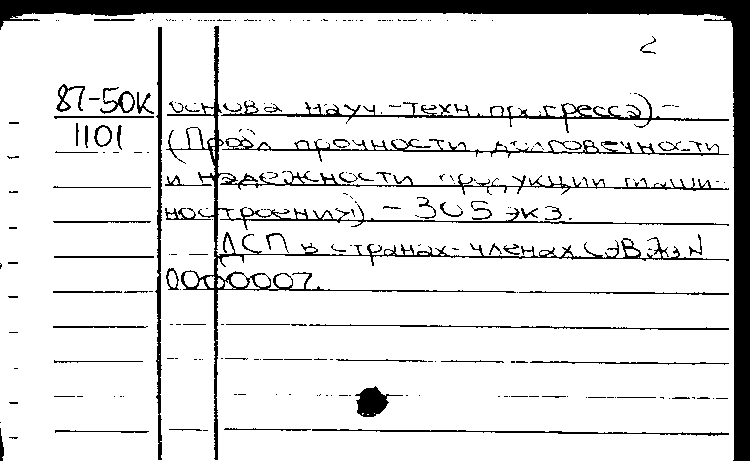 2
87-50К основа науч.-техн. прогресса).-
1101 (Пробл прочности, долговечности
и надежности продукции маши-
ностроения). - 305 экз.
ДСП в странах-членах СЭВ. Экз N
0000007.